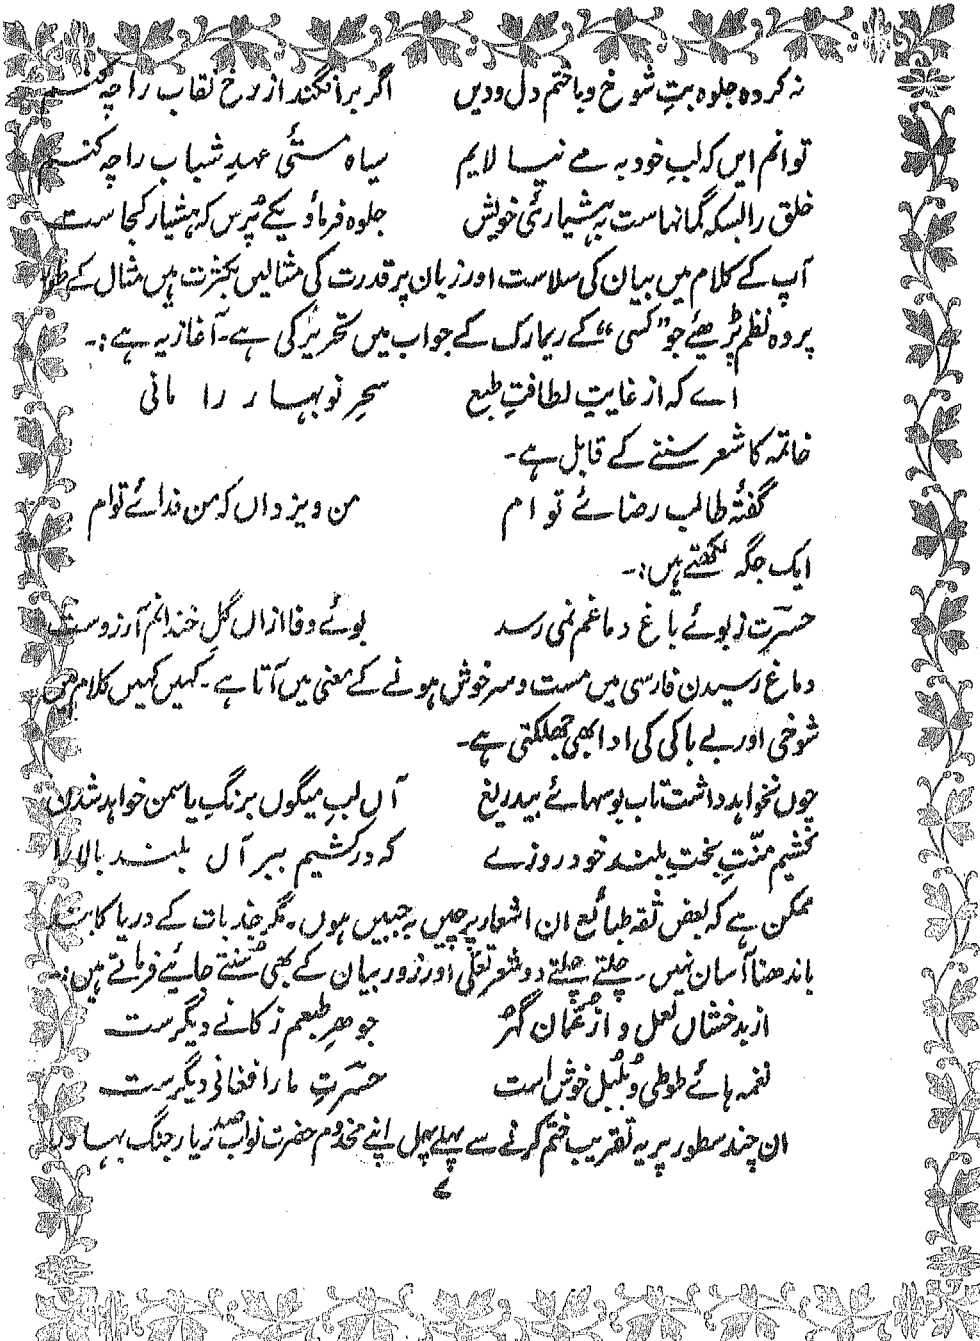 نہ کردہ جلوہ بتِ شوخ و باختم دل و دیں اگر برافگند از رخ نقاب را چہ کنم
توانم ایں کہ لبِ خود بہ مے نیالایم سیاہ مستئ عہدِ شباب را چہ کنم
خلق را بسکہ گمانہاست بہ ہشیارئ خویش جلوہ فرما و یکے پُرس کہ ہشیار کجاست
آپ کے کلام میں بیان کی سلاست اور زبان پر قدرت کی مثالیں بکثرت ہیں مثال کے طور
پر وہ نظم پڑھیئے جو "کسی" کے ریمارک کے جواب میں تحریر کی ہے۔ آغاز یہ ہے:۔
اے کہ از غایتِ لطافتِ طبع سحرِ نوبہار را مانی
خاتمہ کا شعر سننے کے قابل ہے۔
گفتۂ طالب رضائے تو ام من ویزداں کہ من فدائے توام
ایک جگہ لکھتے ہیں:۔
حسرتؔ ز بوئے باغ دماغم نمی رسد بوئے وفا ازاں گلِ خندانم آرزوست
دماغ رسیدن فارسی میں مست و سرخوش ہونے کے معنی میں آتا ہے۔ کہیں کہیں کلام میں
شوخی اور بے باکی کی ادا بھی جھلکتی ہے۔
چوں نخواہد داشت تاب بوسہائے بیدریغ آں لبِ میگوں برنگِ یاسمن خواہد شدن
کشیم منّتِ بختِ بلند خود روزے کہ درکشیم ببر آں بلند بالا را
ممکن ہے کہ بعض ثقہ طبائع ان اشعار پر چیں بہ جبیں ہوں۔ مگر جذبات کے دریا کا بند
باندھنا آسان نہیں۔ چلتے چلتے دو شعر تعلّی اور زور بیان کے بھی سُنتے جائیے فرماتے ہیں:۔
از بدخشاں لعل و از عُمّان گہر جوہرِ طبعم ز کانے دیگرست
نغمہ ہائے طوطی و بُلبل خوش است حسرتِؔ ما را فغانی دیگرست
ان چند سطور پر یہ تقریب ختم کرنے سے پہلے پہل اپنے مخدوم حضرت نواب صدر یار جنگ بہادر
۷